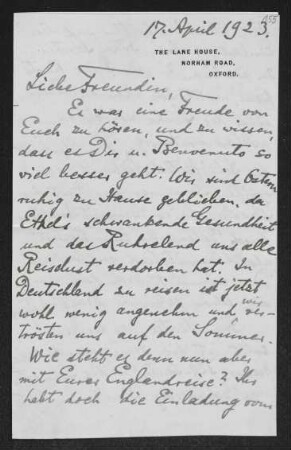 17. April 1923.
THE LANE HOUSE,
NORHAM ROAD,
OXFORD.
Liebe Freundin,
Es war eine Freude von
Euch zu hören, und zu wissen,
dass es Dir u. Benvenuto so
viel besser geht. Wir sind Ostern
ruhig zu Hause geblieben, da
Ethel's schwankende Gesundheit
und das Ruhrelend uns alle
Reiselust verdorben hat. In
Deutschland zu reisen ist jetzt
wohl wenig angenehm und wir ver-
trösten uns auf den Sommer.
Wie steht es denn nun aber
mit Eurer Englandreise? Ihr
habt doch die Einladung vom